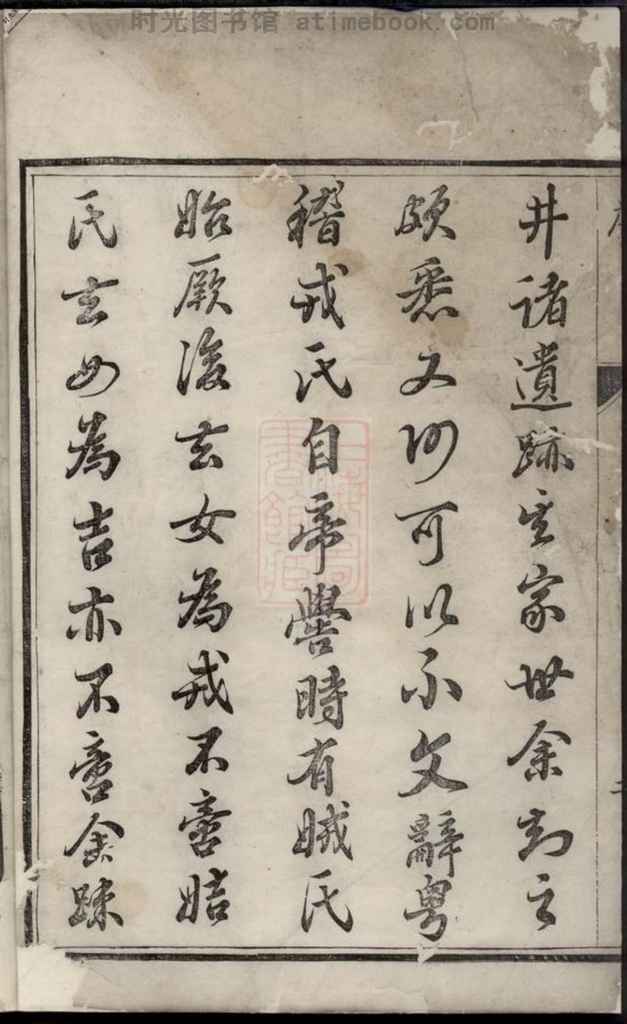 时光图书馆 atimebook.com
井諸遺跡其家世余知之
頗悉又何可以不文辭粵
稽戎氏自帝嚳時有娀氏
始厥後去女為戎不啻姞
氏去女為吉亦不啻余踈
二